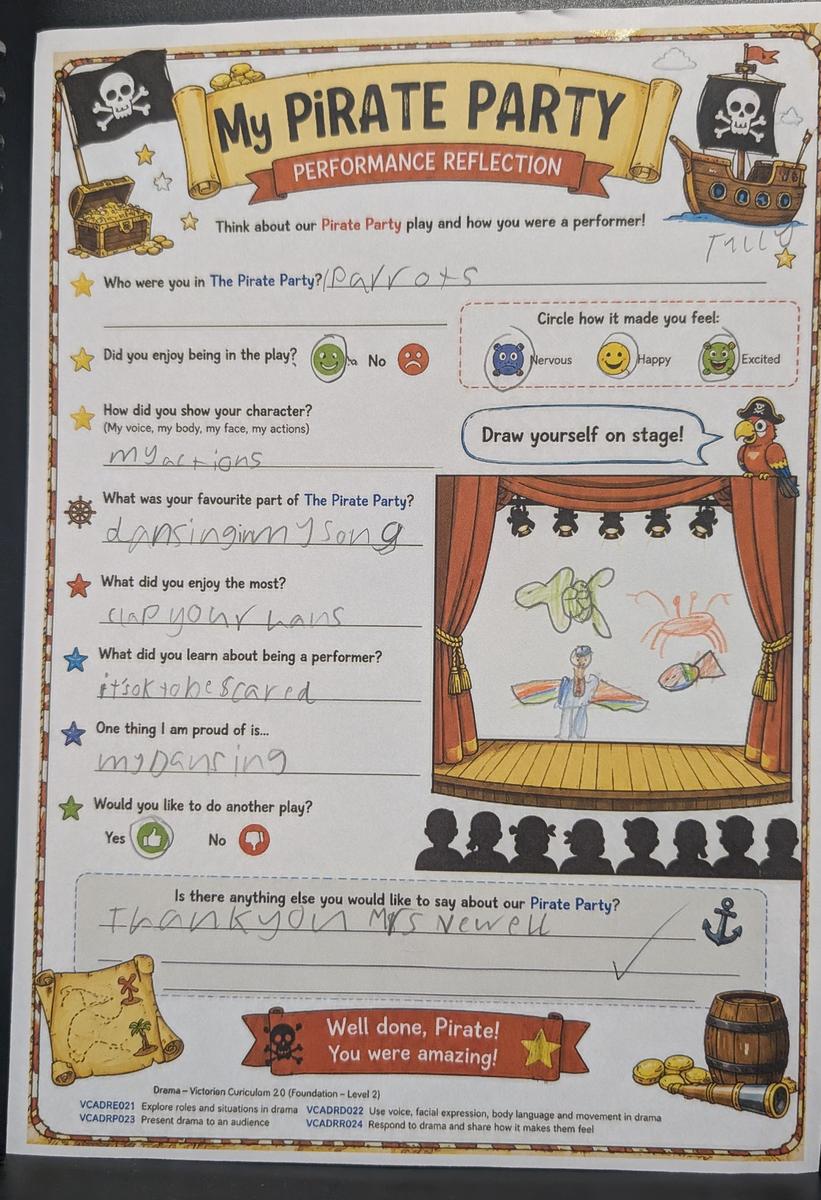 My PiRATE PARTY
PERFORMANCE REFLECTION
Think about our Pirate Party play and how you were a performer!
Tully
Who were you in The Pirate Party? parrots
Circle how it made you feel:
Nervous Happy Excited
Did you enjoy being in the play? No
How did you show your character?
(My voice, my body, my face, my actions)
my actions
Draw yourself on stage!
What was your favourite part of The Pirate Party?
dansinginmysong
What did you enjoy the most?
clap your hans
What did you learn about being a performer?
it'sok to be scared
One thing I am proud of is...
my Dansing
Would you like to do another play?
Yes No
Is there anything else you would like to say about our Pirate Party?
Thankyou Mrs Newell
Well done, Pirate!
You were amazing!
Drama – Victorian Curiculum 2.0 (Foundation – Level 2)
VCADRE021 Explore roles and situations in drama VCADRD022 Use voice, facial expression, body language and movement in drama
VCADRP023 Present drama to an audience VCADRR024 Respond to drama and share how it makes them feel